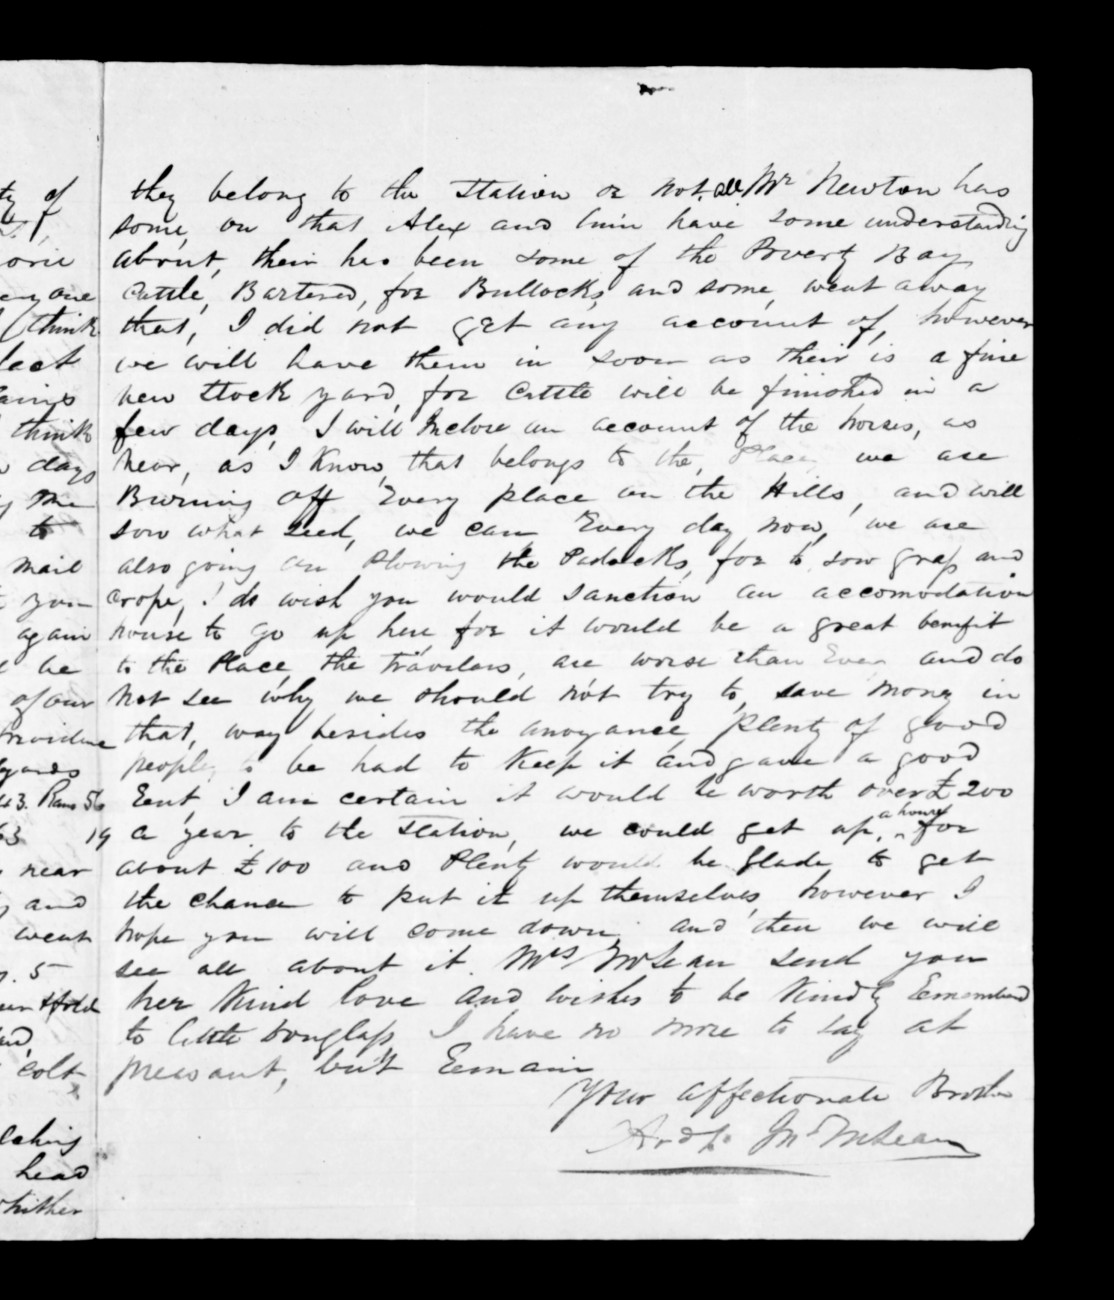 ty of
orie
eny one
(think
lect
ains
think
days
me
to
mail
you
again
be
of our
Provide
yards
43. Rams 56
63 19
near
and
went
5
colt
aching
head
whither
they belong to the Station or not. Mr Newton has
some, on that Alex and him have some understanding
about, their has been some of the Poverty Bay
Cattle, Bartered, for Bullocks, and some, went away
that, I did not get any account of, however
we will have them in soon as their is a fine
new Stock yard, for Cattle will be finished in a
few days, I will Inclose an account of the horses, as
near, as I Know, that belongs to the, Place, we are
Burning off Every place on the Hills, and will
sow what seed, we can Every day now, we are
also going on Plowing the Padocks, for to, sow grass and
crops, I do wish you would sanction an accomodation
house to go up here, for it would be a great benifit
to the Place, the travelers, are worse than Ever and do
not see why we should not try to, save money in
that, way besides the anoyance, plenty of good
people, to be had to Keep it and gave a good
Rent, I am certain it would be worth over £200
a year to the Station, we could get up, a house for
about £100 and Plenty would be Glade to get
the chance to put it up themselves, however I
hope you will come down and then we will
see all about it. Mrs McLean send you
her Kind love and wishes to be Kindly Remembered
to little Douglass, I have no more to say at
presant, but Remain
Your affectionate Brother
Archd. Jn. McLean